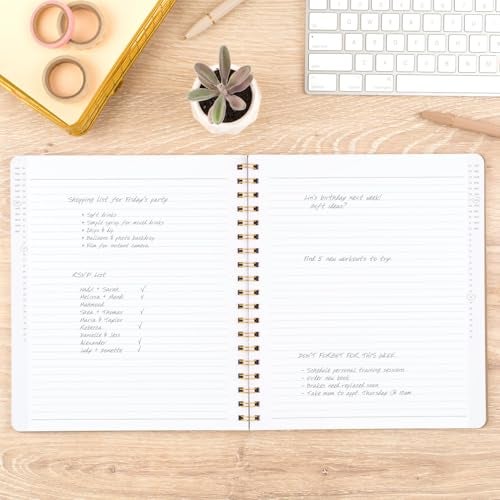 Shopping list for Friday's party
• Soft drinks
• Simple syrup for mixed drinks
• Chips & dip
• Balloons & photo backdrop
• Film for instant camera
RSVP List
Nadil + Sarah ✓
Melissa + Mandi ✓
Mahmoud
Shea + Thomas ✓
Maria & Taylor
Rebecca ✓
Danielle & Jess
Alexander ✓
Judy + Donette ✓
Lin's birthday next week!
Gift ideas?
Find 5 new workouts to try:
DON'T FORGET FOR THIS WEEK
- Schedule personal training sessions
- Order new book
- Brakes need replaced soon
- Take mom to appt. Thursday @ 10am